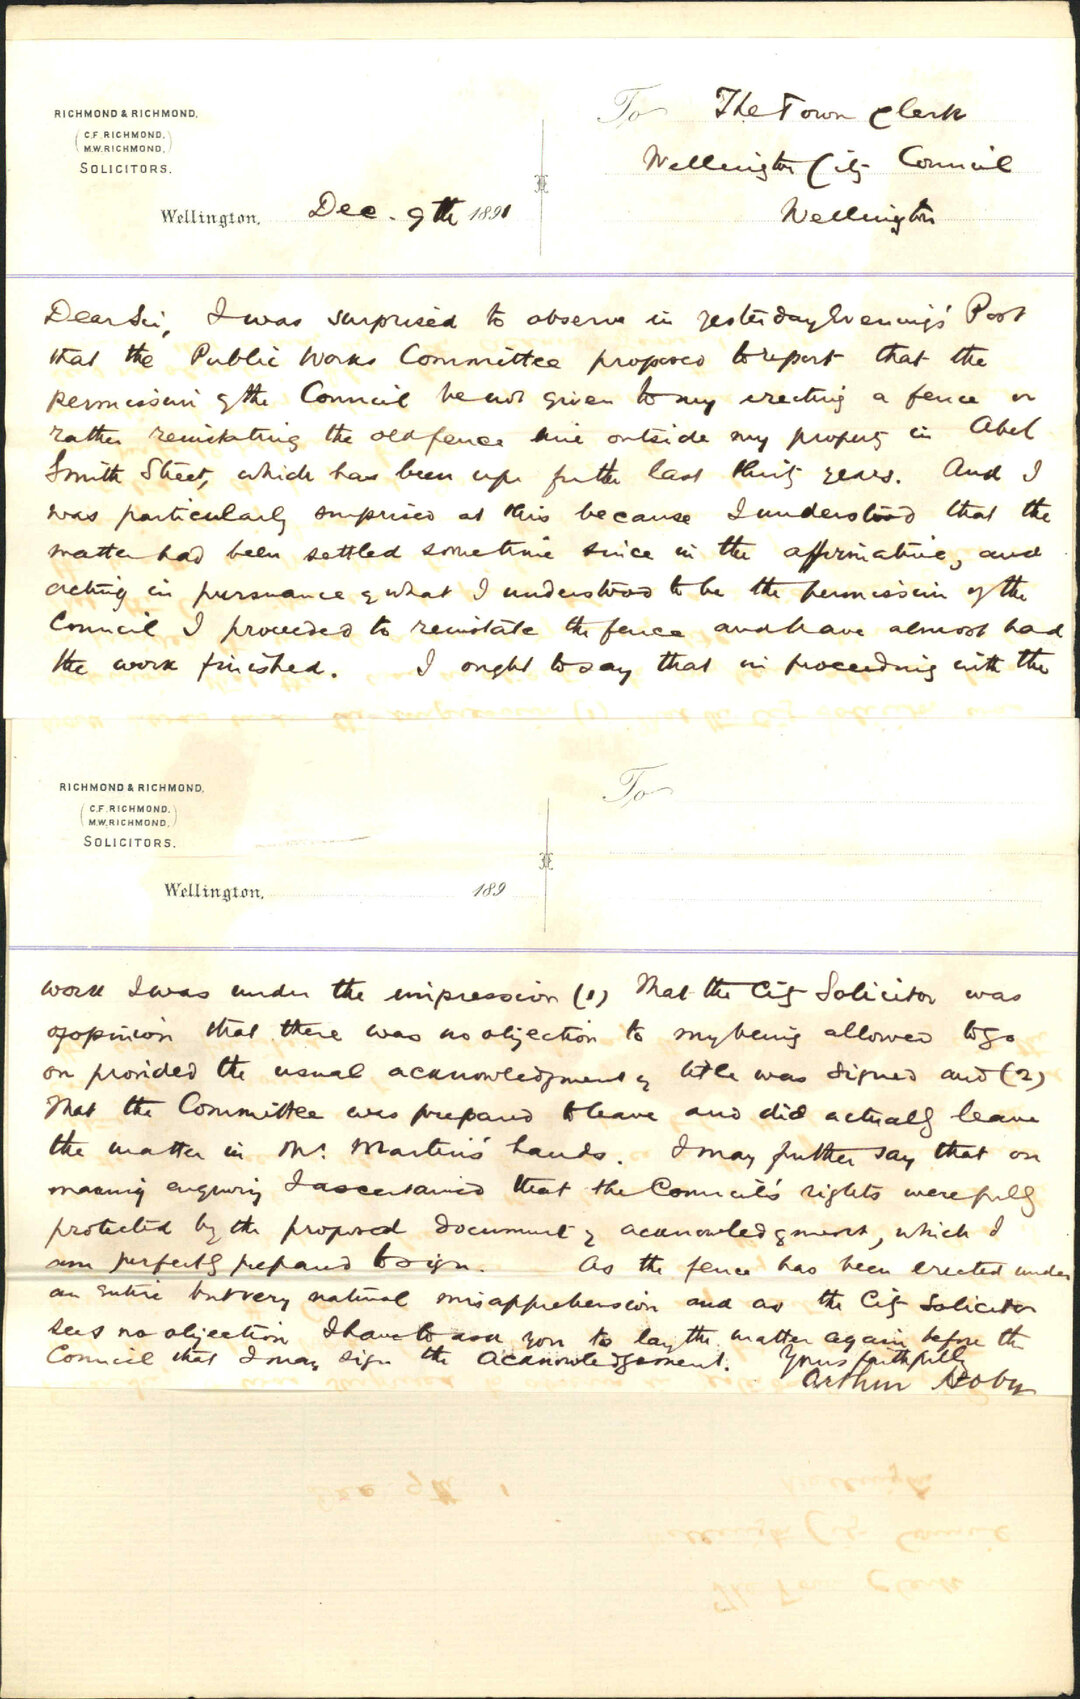 RICHMOND & RICHMOND.
C.F. RICHMOND.
M.W. RICHMOND.
SOLICITORS.
Wellington, Dec. 9th 1891
To The Town Clerk
Wellington City Council
Wellington
Dear Sir, I was surprised to observe in yesterday Evening's Post
that the Public Works Committee proposed to report that the
permission of the Council be not given to my erecting a fence or
rather reinstating the old fence line outside my property in Abel
Smith Street, which has been up for the last thirty years. And I
was particularly surprised at this because I understood that the
matter had been settled sometime since in the affirmative, and
acting in pursuance of what I understood to be the permission of the
Council I proceeded to reinstate the fence and have almost had
the work finished. I ought to say that in proceeding with the
RICHMOND & RICHMOND.
C.F. RICHMOND.
M.W. RICHMOND.
SOLICITORS.
Wellington, 189
To
work I was under the impression (1) That the City Solicitor was
of opinion that there was no objection to my being allowed to go
on provided the usual acknowledgment of title was signed and (2)
That the Committee was prepared to leave and did actually leave
the matter in Mr. Martin's hands. I may further say that on
making enquiry I ascertained that the Council's rights were fully
protected by the proposed document of acknowledgment, which I
am perfectly prepared to sign. As the fence has been erected under
an entire but very natural misapprehension and as the City Solicitor
sees no objection I have to ask you to lay the matter again before the
Council that I may sign the acknowledgement. Yours faithfully
Arthur Hoby